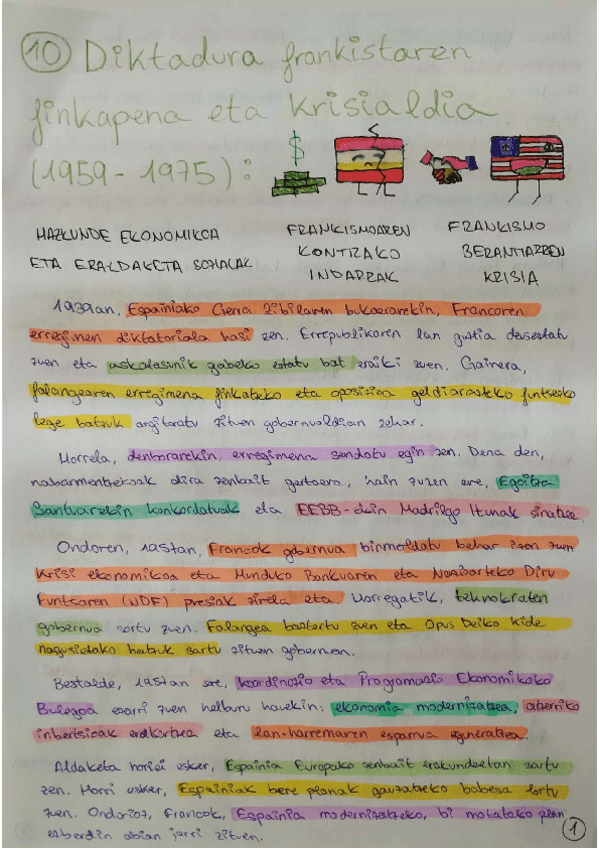 10 Diktadura frankistaren
finkapena eta krisialdia
(1959 - 1975):
$
HAZKUNDE EKONOMIKOA
ETA ERALDAKETA SOZIALAK
FRANKISMOAREN
KONTRAKO
INDARRAK
FRANKISMO
BERANTIARREN
KRISIA
1939an, Espainiako Gerra Zibilaren bukaerarekin, Francoren
erregimen diktatoriala hasi zen. Errepublikaren lan guztia desestatu
zuen eta askatasunik gabeko estatu bat eraiki zuen. Gainera,
falangearen erregimena finkatzeko eta oposizioa geldiarazteko funtsezko
lege batzuk argitaratu zituen gobernualdian zehar.
Horrela, denborarekin, erregimena sendotu egin zen. Dena den,
nabarmentzekoak dira zenbait gertaera, hain zuzen ere, Egoitza
Santuarekin konkordatuak eta EEBB-ekin Madrilgo Itunak sinatzea.
Ondoren, 1957an, Francok gobernua birmoldatu behar izan zuen
krisi ekonomikoa eta Munduko Bankuaren eta Nazioarteko Diru
Funtsaren (NDF) presiak zirela eta. Horregatik, teknokraten
gobernua sortu zuen. Falangea baztertu zuen eta Opus Deiko kide
nagusietako batzuk sartu zituen gobernuan.
Bestalde, 1957an ere, koordinazio eta Programazio Ekonomikoko
Bulegoa ezarri zuen helburu hauekin: ekonomia modernizatzea, atzerriko
inbertsioak erakartzea eta lan-harremanen esparrua eguneratzea.
Aldaketa horiei esker, Espainia Europako zenbait erakundeetan sartu
zen. Horri esker, Espainiak bere planak gauzatzeko babesa lortu
zuen. Ondorioz, Francok, Espainia modernizatzeko, bi motatako plan
ezberdin abian jarri zituen.
1